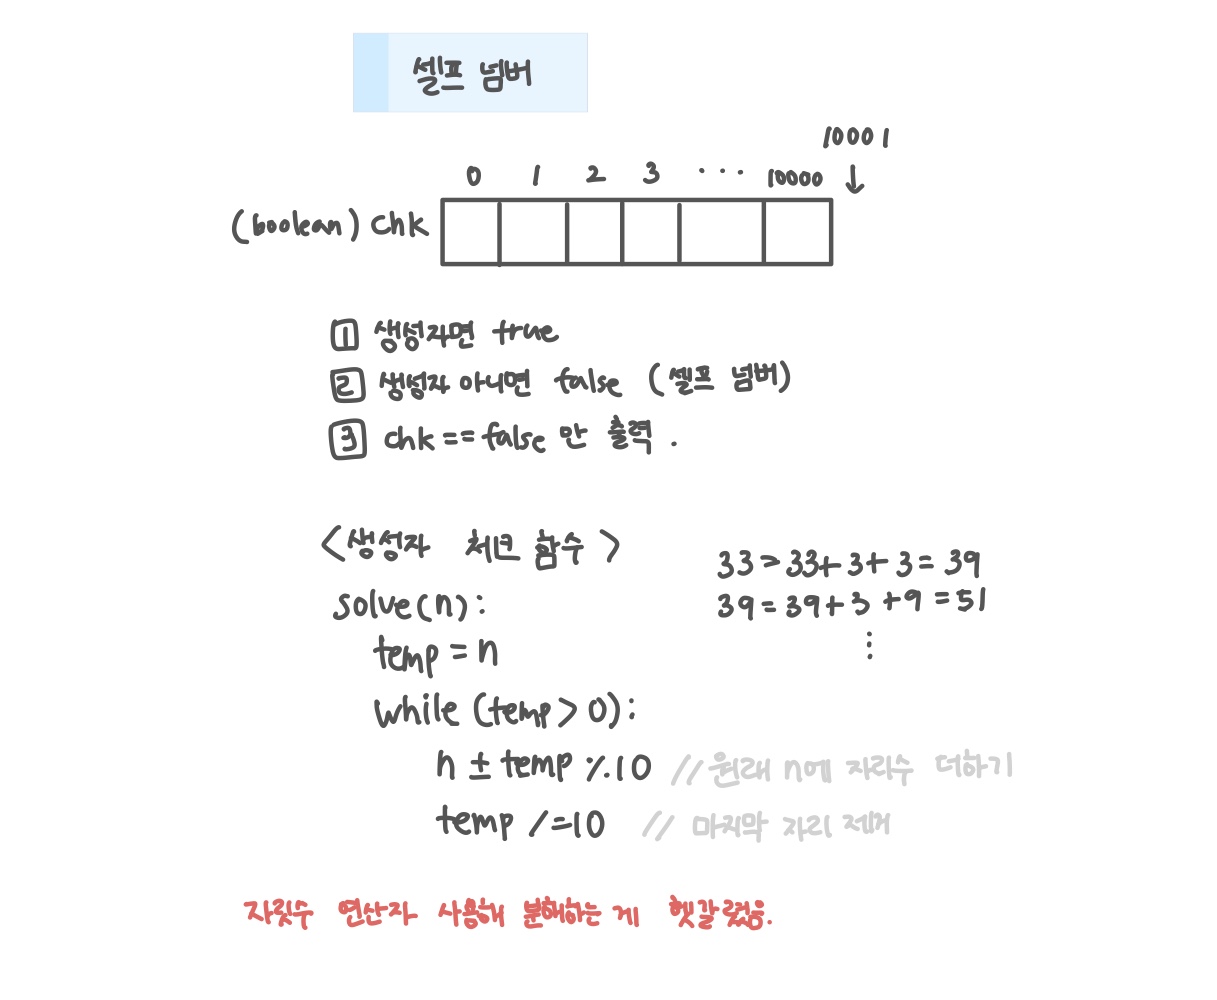 셀프 넘버
10001
0 1 2 3 ... 10000 ↓
(boolean) chk
1 생성자면 true
2 생성자 아니면 false (셀프 넘버)
3 chk == false 만 출력.
<생성자 체크 함수>
solve(n):
temp = n
while (temp > 0):
n ± temp %10 // 원래 n에 자리수 더하기
temp /=10 // 마지막 자리 제거
33 > 33+ 3+ 3 = 39
39 = 39+ 3 +9 = 51
⋮
자릿수 연산자 사용해 분해하는 게 헷갈렸음.